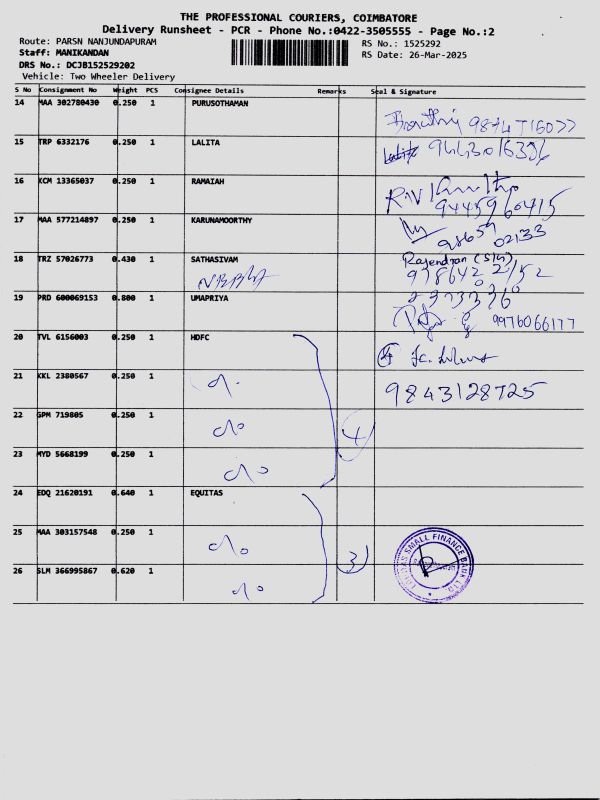 THE PROFESSIONAL COURIERS, COIMBATORE
Delivery Runsheet - PCR - Phone No.:0422-3505555 - Page No.:2
Route: PARSN NANJUNDAPURAM
RS No.: 1525292
Staff: MANIKANDAN
RS Date: 26-Mar-2025
DRS No.: DCJB152529202
Vehicle: Two Wheeler Delivery
S No Consignment No Weight PCS Consignee Details Remarks Seal & Signature
14 MAA 302780430 0.250 1 PURUSOTHAMAN
15 TRP 6332176 0.250 1 LALITA
Lalita
16 KCM 13365037 0.250 1 RAMAIAH
9445960415
17 MAA 577214897 0.250 1 KARUNAMOORTHY
98659 02133
18 TRZ 57026773 0.430 1 SATHASIVAM
Rajendran (S/G)
19 PRD 600069153 0.800 1 UMAPRIYA
9976066177
20 TVL 6156003 0.250 1 HDFC
21 KKL 2380567 0.250 1
9843128725
22 GPM 719805 0.250 1
4
23 MYD 5668199 0.250 1
24 EDQ 21620191 0.640 1 EQUITAS
25 MAA 303157548 0.250 1
3
EQUITAS SMALL FINANCE BANK LTD
26 SLM 366995867 0.620 1